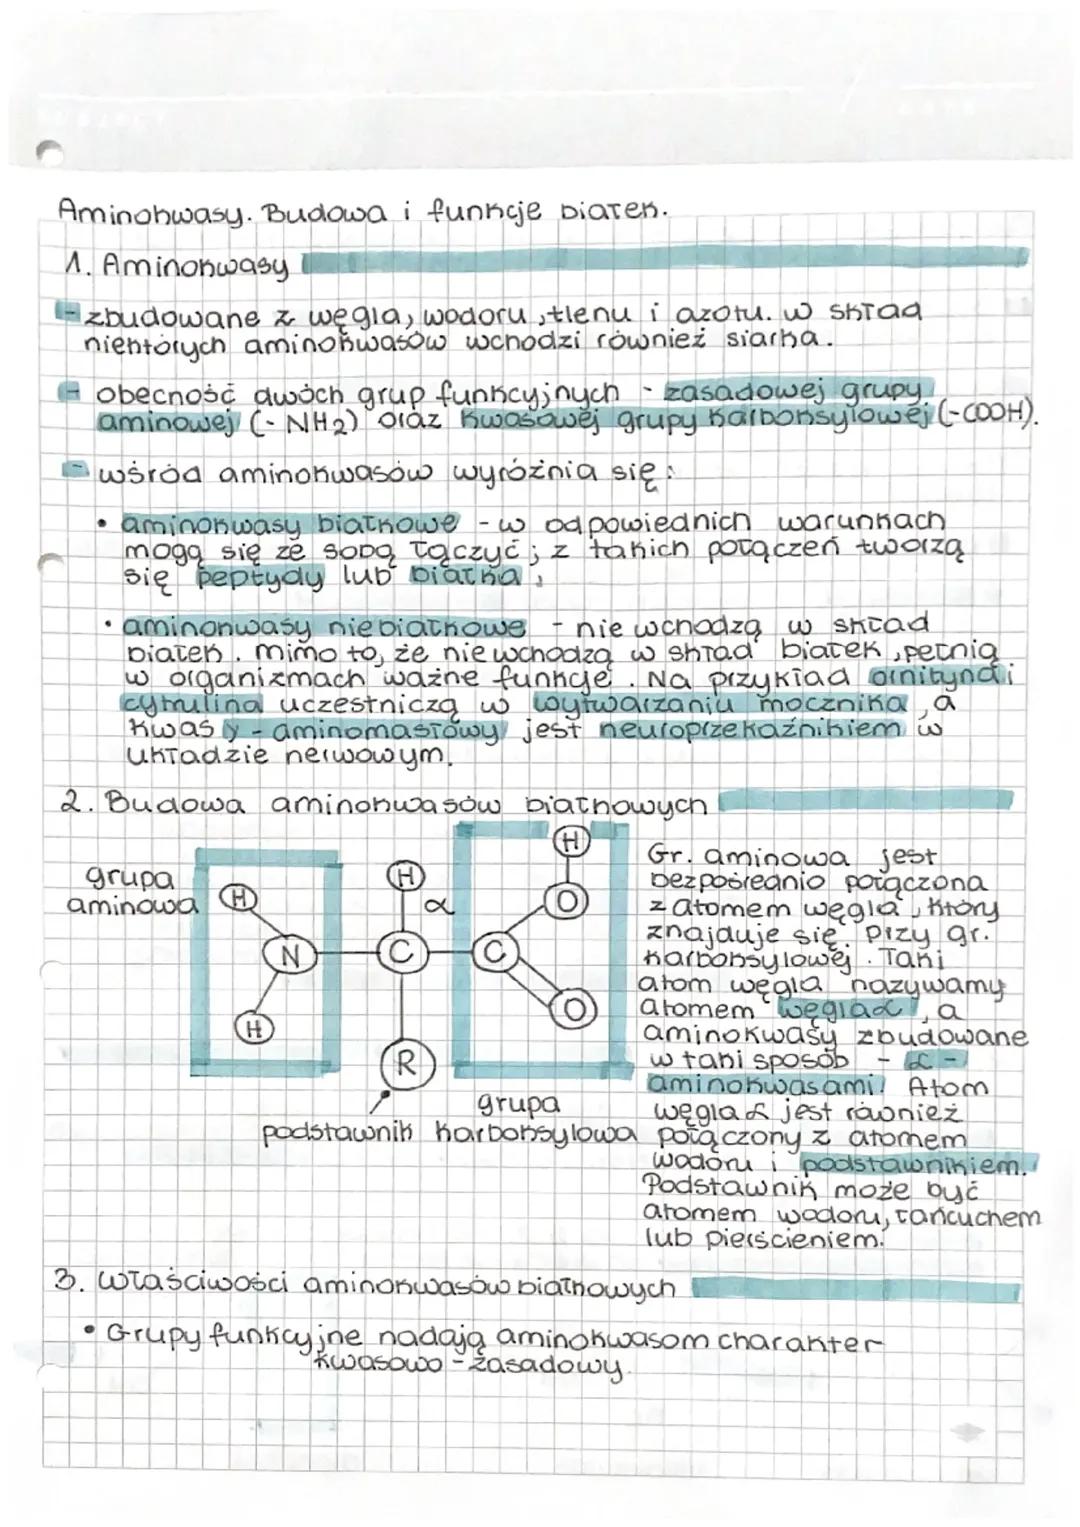 Aminokwasy. Budowa i funkcje białek.
1. Aminokwasy
- zbudowane z węgla, wodoru, tlenu i azotu. W skład
niektórych aminokwasów wchodzi również siarka.
- obecność dwóch grup funkcyjnych - zasadowej grupy
aminowej (-NH2) oraz kwasowej grupy karboksylowej (-COOH).
- wśród aminokwasów wyróżnia się:
• aminokwasy białkowe - w odpowiednich warunkach
mogą się ze sobą łączyć; z takich połączeń tworzą
się peptydy lub białka,
• aminokwasy niebiałkowe - nie wchodzą w skład
białek. Mimo to, że nie wchodzą w skład białek, pełnią
w organizmach ważne funkcje. Na przykład ornityna i
cytrulina uczestniczą w wytwarzaniu mocznika, a
kwas γ - aminomasłowy jest neuroprzekaźnikiem w
układzie nerwowym.
2. Budowa aminokwasów białkowych
grupa
aminowa
H
H
N
H
α
C
R
C
H
O
O
podstawnik
grupa
karboksylowa
Gr. aminowa jest
bezpośrednio połączona
z atomem węgla, który
znajduje się przy gr.
karboksylowej. Taki
atom węgla nazywamy
atomem węgla α, a
aminokwasy zbudowane
w taki sposób - α -
aminokwasami. Atom
węgla α jest również
połączony z atomem
wodoru i podstawnikiem.
Podstawnik może być
atomem wodoru, łańcuchem
lub pierścieniem.
3. Właściwości aminokwasów białkowych
• Grupy funkcyjne nadają aminokwasom charakter
kwasowo - zasadowy.